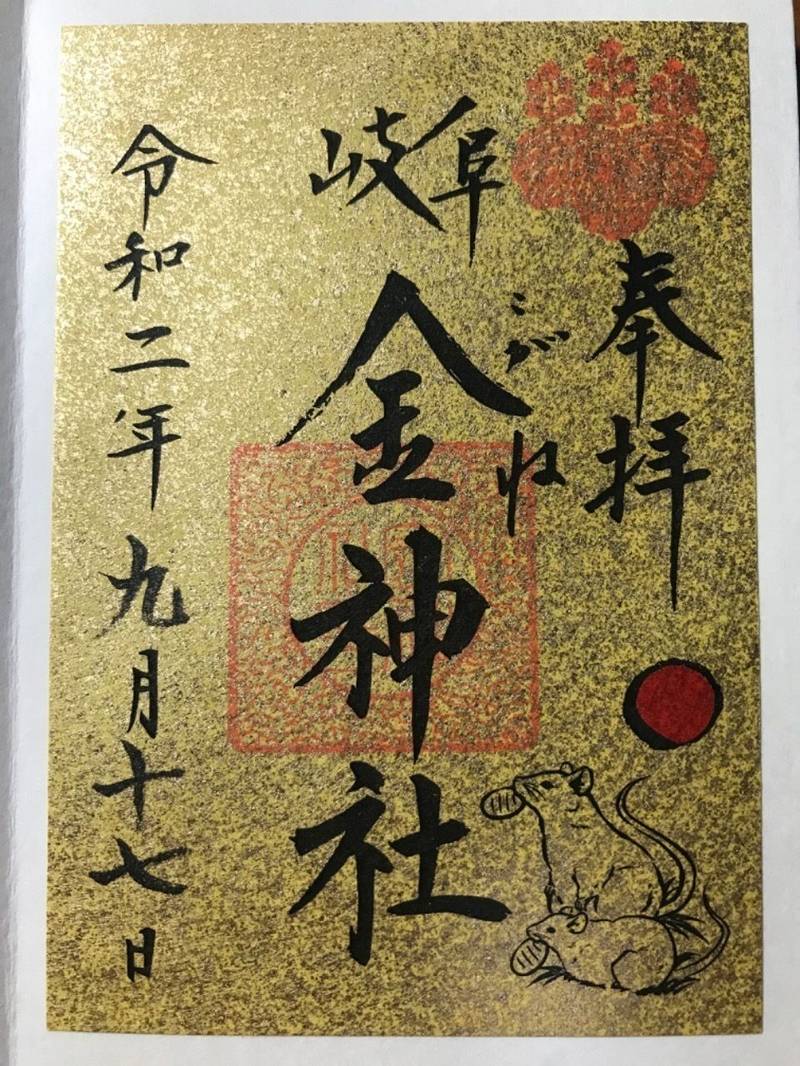 奉拝
岐阜
こがね
金神社
令和二年九月十七日